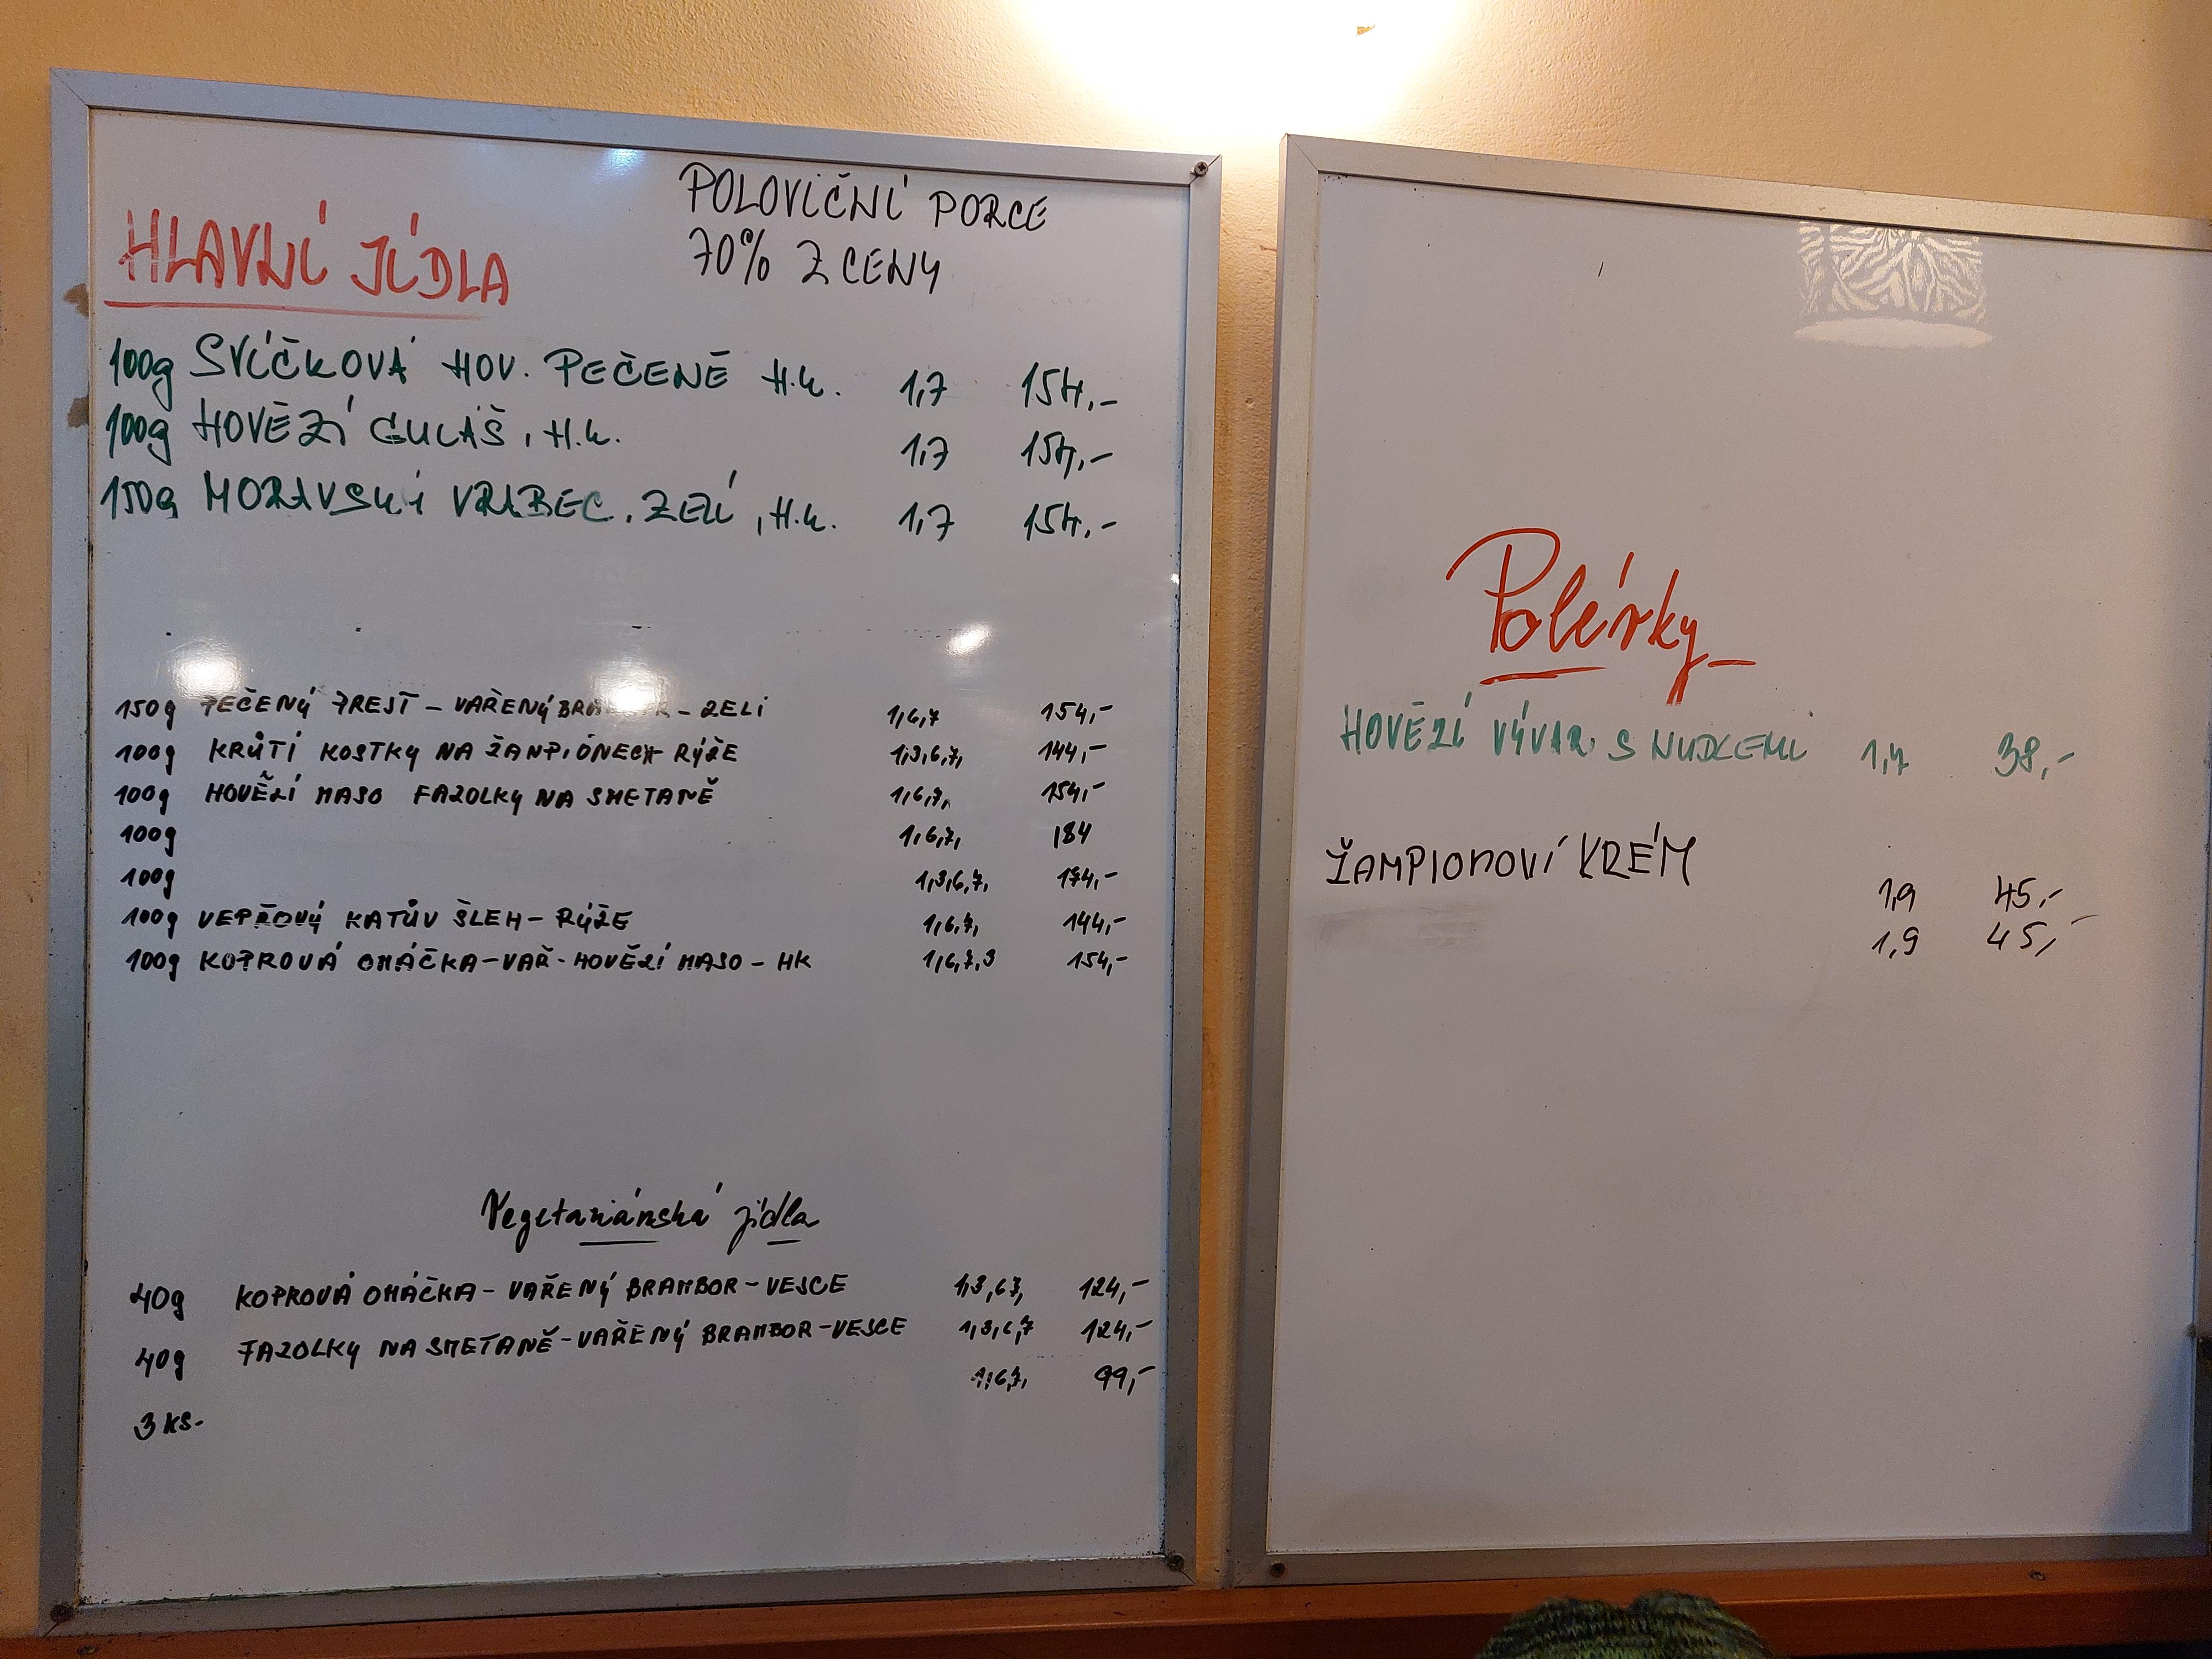 HLAVNÍ JÍDLA
POLOVIČNÍ PORCE
70% Z CENY
100g SVÍČKOVÁ HOV. PEČENĚ H.K. 1,7 154,-
100g HOVĚZÍ GULÁŠ, H.K. 1,7 154,-
150g MORAVSKÝ VRABEC, ZELÍ, H.K. 1,7 154,-
150g PEČENÝ BRAMBOR - ZELI 1,6,7 154,-
100g KRŮTÍ KOSTKY NA ŽAMPIÓNECH RÝŽE 1,3,6,7, 144,-
100g HOVĚZÍ MASO FAZOLKY NA SMETANĚ 1,6,7, 154,-
100g 1,6,7, 184
100g 1,3,6,7, 174,-
100g VEPŘOVÝ KATŮV ŠLEH - RÝŽE 1,6,7, 144,-
100g KOPROVÁ OMÁČKA - VAŘ - HOVĚZÍ MASO - HK 1,6,7,3 154,-
Vegetariánská jídla
40g KOPROVÁ OMÁČKA - VAŘENÝ BRAMBOR - VEJCE 1,3,6,7, 124,-
40g FAZOLKY NA SMETANĚ - VAŘENÝ BRAMBOR - VEJCE 1,3,6,7 124,-
3 KS- 1,6,7, 99,-
Polévky
HOVĚZÍ VÝVAR S NUDLEMI 1,7 38,-
ŽAMPIONOVÍ KRÉM 1,9 45,-
1,9 45,-